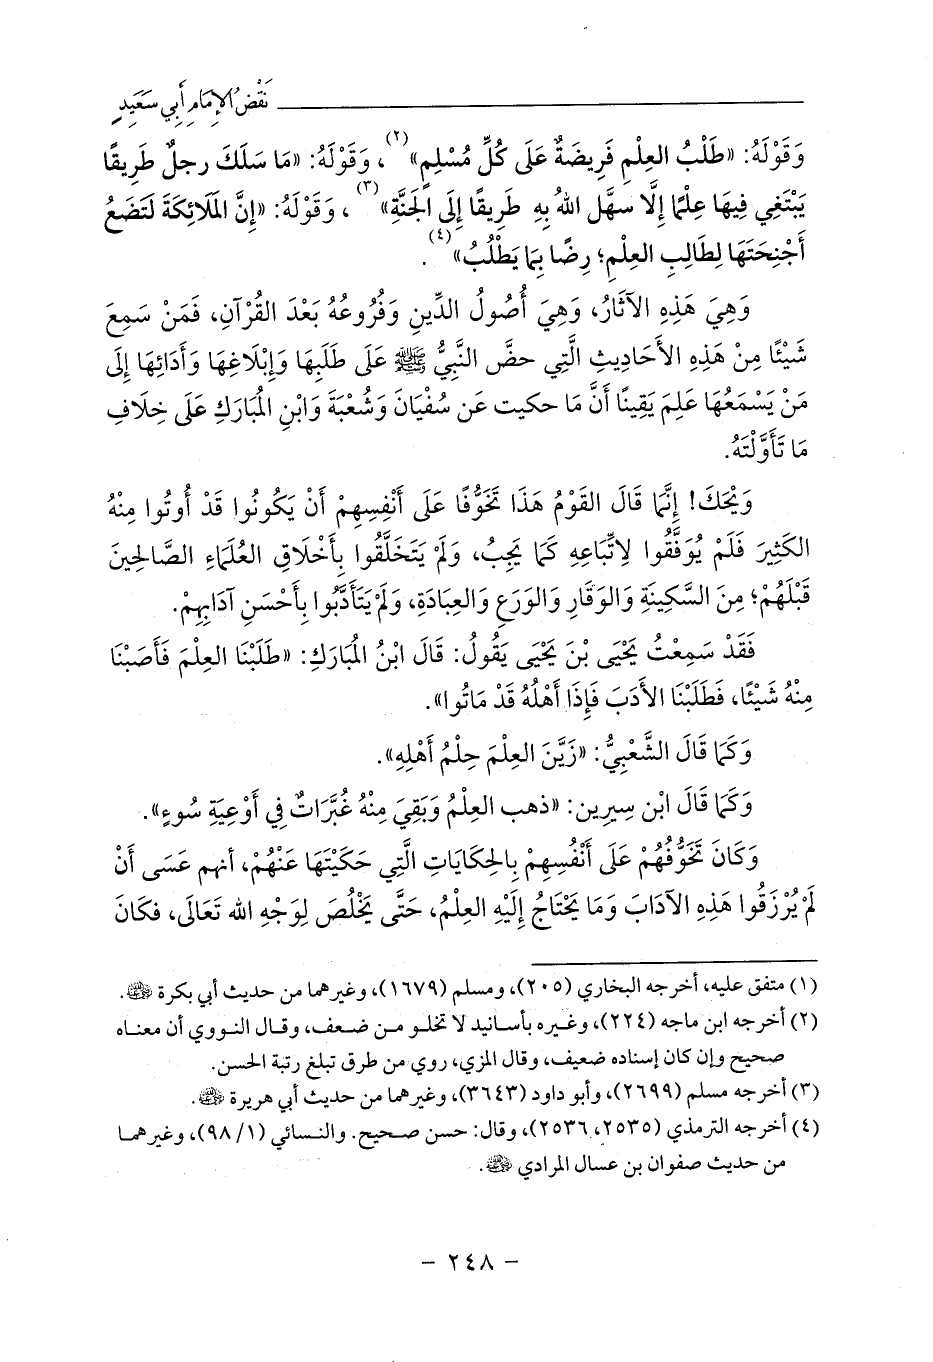 نَقْضُ الإِمَامِ أَبِي سَعِيدٍ
وَقَوْلَهُ: «طَلْبُ العِلْمِ فَرِيضَةٌ عَلَى كُلِّ مُسْلِمٍ»(٢)، وَقَوْلَهُ: «مَا سَلَكَ رجلٌ طَرِيقًا
يَبْتَغِي فِيهَا عِلْمًا إِلَّا سهَّل اللهُ بِهِ طَرِيقًا إِلَى الجَنَّةِ»(٣)، وَقَوْلَهُ: «إِنَّ المَلَائِكَةَ لَتَضَعُ
أَجْنِحَتَهَا لِطَالِبِ العِلْمِ؛ رِضًا بِمَا يَطْلُبُ»(٤).
وَهِيَ هَذِهِ الآثَارُ، وَهِيَ أُصُولُ الدِّينِ وَفُرُوعُهُ بَعْدَ القُرْآنِ، فَمَنْ سَمِعَ
شَيْئًا مِنْ هَذِهِ الأَحَادِيثِ الَّتِي حضَّ النَّبِيُّ ﷺ عَلَى طَلَبِهَا وَإِبْلَاغِهَا وَأَدَائِهَا إِلَى
مَنْ يَسْمَعُهَا عَلِمَ يَقِينًا أَنَّ مَا حكيت عَن سُفْيَانَ وَشُعْبَةَ وَابْنِ المُبَارَكِ عَلَى خِلَافِ
مَا تَأَوَّلْتَهُ.
وَيْحَكَ! إِنَّمَا قَالَ القَوْمُ هَذَا تَخَوُّفًا عَلَى أَنْفِسِهِمْ أَنْ يَكُونُوا قَدْ أُوتُوا مِنْهُ
الكَثِيرَ فَلَمْ يُوَفَّقُوا لِاتِّبَاعِهِ كَمَا يَجِبُ، وَلَمْ يَتَخَلَّقُوا بِأَخْلَاقِ العُلَمَاءِ الصَّالِحِينَ
قَبْلَهُمْ؛ مِنَ السَّكِينَةِ وَالوَقَارِ وَالوَرَعِ وَالعِبَادَةِ، وَلَمْ يَتَأَدَّبُوا بِأَحْسَنِ آدَابِهِمْ.
فَقَدْ سَمِعْتُ يَحْيَى بْنَ يَحْيَى يَقُولُ: قَالَ ابْنُ المُبَارَكِ: «طَلَبْنَا العِلْمَ فَأَصَبْنَا
مِنْهُ شَيْئًا، فَطَلَبْنَا الأَدَبَ فَإِذَا أَهْلُهُ قَدْ مَاتُوا».
وَكَمَا قَالَ الشَّعْبِيُّ: «زَيَّنَ العِلْمَ حِلْمُ أَهْلِهِ».
وَكَمَا قَالَ ابْن سِيرِين: «ذهب العِلْمُ وَبَقِيَ مِنْهُ غُبَّرَاتٌ فِي أَوْعِيَةِ سُوءٍ».
وَكَانَ تَخَوُّفُهُمْ عَلَى أَنْفُسِهِمْ بِالحِكَايَاتِ الَّتِي حَكَيْتَهَا عَنْهُمْ، أنهم عَسَى أَنْ
لَمْ يُرْزَقُوا هَذِهِ الآدَابَ وَمَا يَحْتَاجُ إِلَيْهِ العِلْمُ، حَتَّى يَخْلُصَ لِوَجْهِ الله تَعَالَى، فكَانَ
(١) متفق عليه، أخرجه البخاري (٢٠٥)، ومسلم (١٦٧٩)، وغيرهما من حديث أبي بكرة رضي الله عنه.
(٢) أخرجه ابن ماجه (٢٢٤)، وغيره بأسانيد لا تخلو من ضعف، وقال النووي أن معناه
صحيح وإن كان إسناده ضعيف، وقال المزي، روي من طرق تبلغ رتبة الحسن.
(٣) أخرجه مسلم (٢٦٩٩)، وأبو داود (٣٦٤٣)، وغيرهما من حديث أبي هريرة رضي الله عنه.
(٤) أخرجه الترمذي (٢٥٣٥، ٢٥٣٦)، وقال: حسن صحيح. والنسائي (٩٨/١)، وغيرهما
من حديث صفوان بن عسال المرادي رضي الله عنه.
- ٢٤٨ -